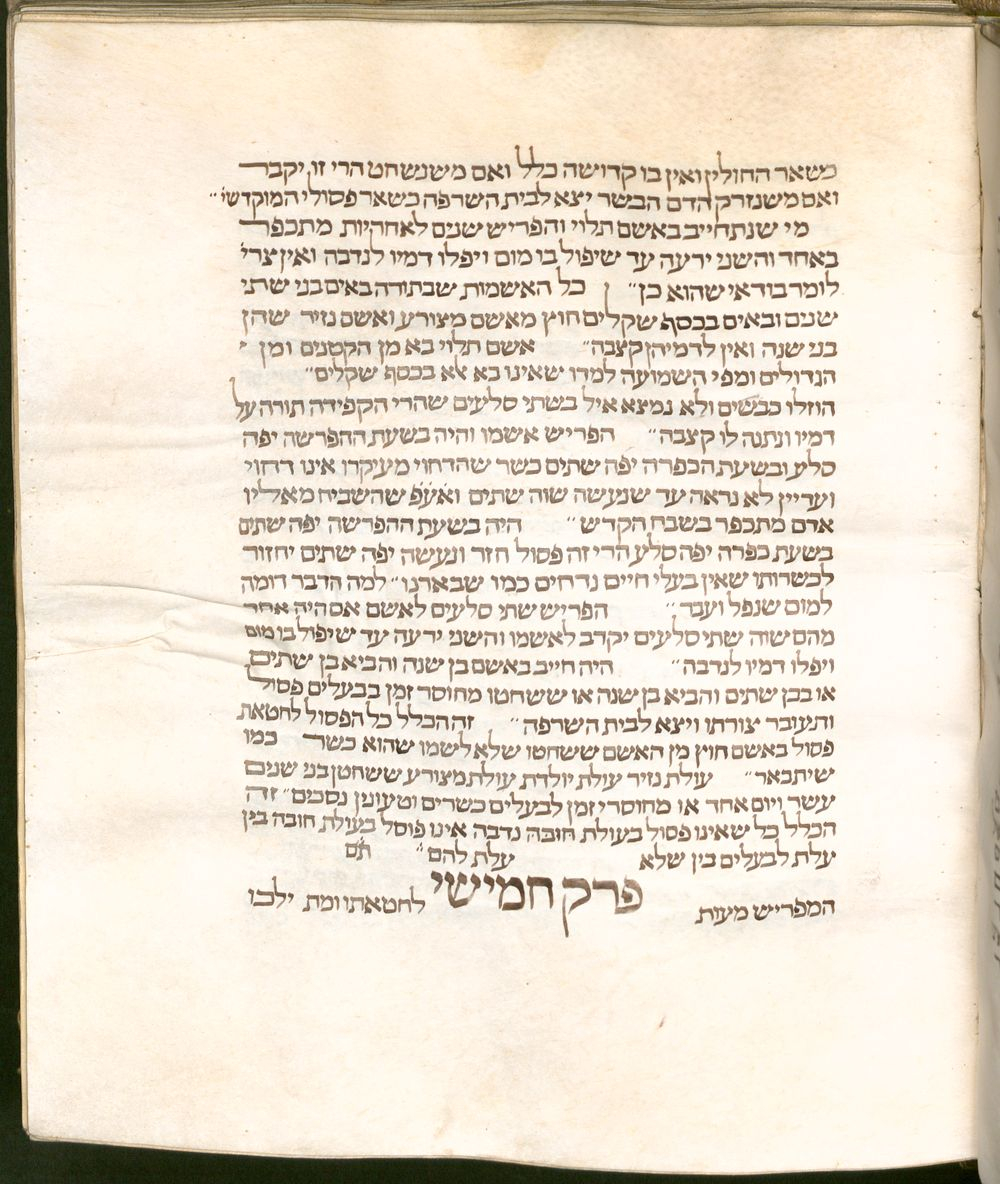 משאר החולין ואין בו קדושה כלל ואם משנשחט הרי זו יקבר
ואם משנזרק הדם הבשר יצא לבית השרפה כשאר פסולי המוקדשי״
מי שנתחייב באשם תלוי והפריש שנים לאחריות מתכפר
באחד והשני ירעה עד שיפול בו מום ויפלו דמיו לנדבה ואין צרי׳
לומר בודאי שהוא כן״ כל האשמות שבתורה באים בני שתי
שנים ובאים בכסף שקלים חוץ מאשם מצורע ואשם נזיר שהן
בני שנה ואין לדמיהן קצבה״ אשם תלוי בא מן הקטנים ומן י
הגדולים ומפי השמועה למדו שאינו בא אלא בכסף שקלים״
הוזלו כבשים ולא נמצא איל בשתי סלעים שהרי הקפידה תורה על
דמיו ונתנה לו קצבה״ הפריש אשמו והיה בשעת ההפרשה יפה
סלע ובשעת הכפרה יפה שתים כשר שהדחוי מעיקרו אינו דחוי
ועדיין לא נראה עד שנעשה שוה שתים ואעפ שהשביח מאליו
אדם מתכפר בשבח הקדש״ היה בשעת ההפרשה יפה שתים
בשעת כפרה יפה סלע הרי זה פסול חזר ונעשה יפה שתים יחזור
לכשרותו שאין בעלי חיים נדחים כמו שבארנו״ למה הדבר דומה
למום שנפל ועבר״ הפריש שתי סלעים לאשם אם היה אחד
מהם שוה שתי סלעים יקרב לאשמו והשני ירעה עד שיפול בו מום
ויפלו דמיו לנדבה״ היה חייב באשם בן שנה והביא בן שתים
או בבן שתים והביא בן שנה או ששחטו מחוסר זמן בבעלים פסול
ותעובר צורתו ויצא לבית השרפה״ זה הכלל כל הפסול לחטאת
פסול באשם חוץ מן האשם ששחטו שלא לשמו שהוא כשר כמו
שיתבאר״ עולת נזיר עולת יולדת עולת מצורע ששחטן בני שנים
עשר ויום אחד או מחוסרי זמן לבעלים כשרים וטעונין נסכים״ זה
הכלל כל שאינו פסול בעולת חובה נדבה אינו פוסל בעולת חובה בין
עלת לבעלים בין שלא עלת להם״ תם
פרק חמישי
המפריש מעות לחטאתו ומת ילכו